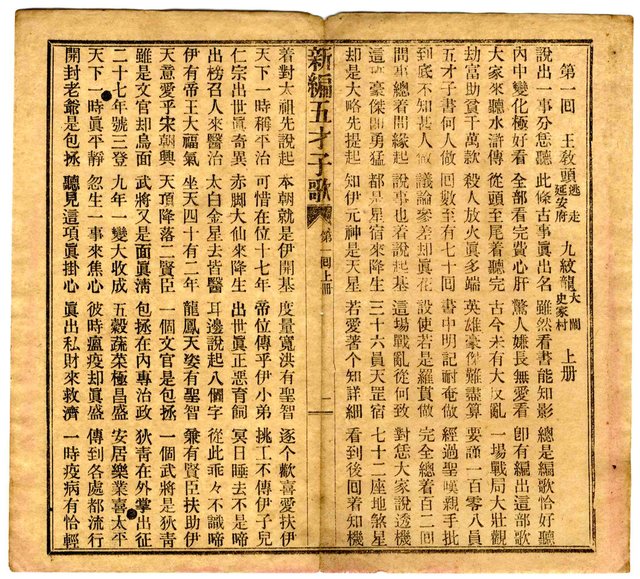 第一回 王教頭逃走延安府 九紋龍大鬧史家村 上册
說出一事分恁聽 此條古事眞出名 雖然看書能知影 總是編歌恰好聽
內中變化極好看 全部看完費心肝 驚人嫌長無愛看 卽有編出這部歌
大家來聽水滸傳 從頭至尾着聽完 古今未有大反亂 一場戰局大壯觀
劫富助貧千萬款 殺人放火眞多端 英雄豪傑難盡算 要謹一百零八員
五才子書何人做 回數至有七十回 書中明記耐奄做 經過聖嘆親手批
到底不知甚人做 議論參差却眞花 設使若是羅貫做 完全總着百二回
問事總着問緣起 說事也着說起基 這場戰亂從何致 對恁大家說透機
這豪傑勇猛 都是星宿來降生 三十六員天罡宿 七十二座地煞星
却是大略先提起 知伊元神是天星 若愛著个知詳細 看到後回着知機
新編五才子歌 第一回上册 一
着對太祖先說起 本朝就是伊開基 度量寬洪有聖智 逐个歡喜愛扶伊
天下一時稱平治 可惜在位十七年 帝位傳乎伊小弟 挑工不傳伊子兒
仁宗出世眞奇異 赤脚大仙來降生 出世眞正惡育飼 冥日睡去不是啼
出榜召人來醫治 太白金星去皆醫 耳邊說起八個字 從此乖々不識啼
伊有帝王大福氣 坐天四十有二年 龍鳳天姿有聖智 兼有賢臣扶助伊
天意愛乎宋朝興 天頂降落二賢臣 一個文官是包拯 一個武將是狄青
雖是文官却烏面 武將又是面眞淸 包拯在內專治政 狄青在外掌出征
二十七年號三登 九年一變大收成 五穀蔬菜極昌盛 安居樂業喜太平
天下一時眞平靜 忽生一事來焦心 彼時瘟疫却眞盛 傳到各處都流行
開封老爺是包拯 聽見這項眞掛心 眞出私財來救濟 一時疫病有恰輕